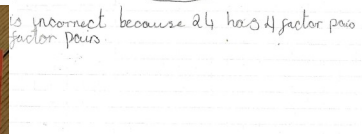 is incorrect because 24 has 4 factor pairs
factor pairs